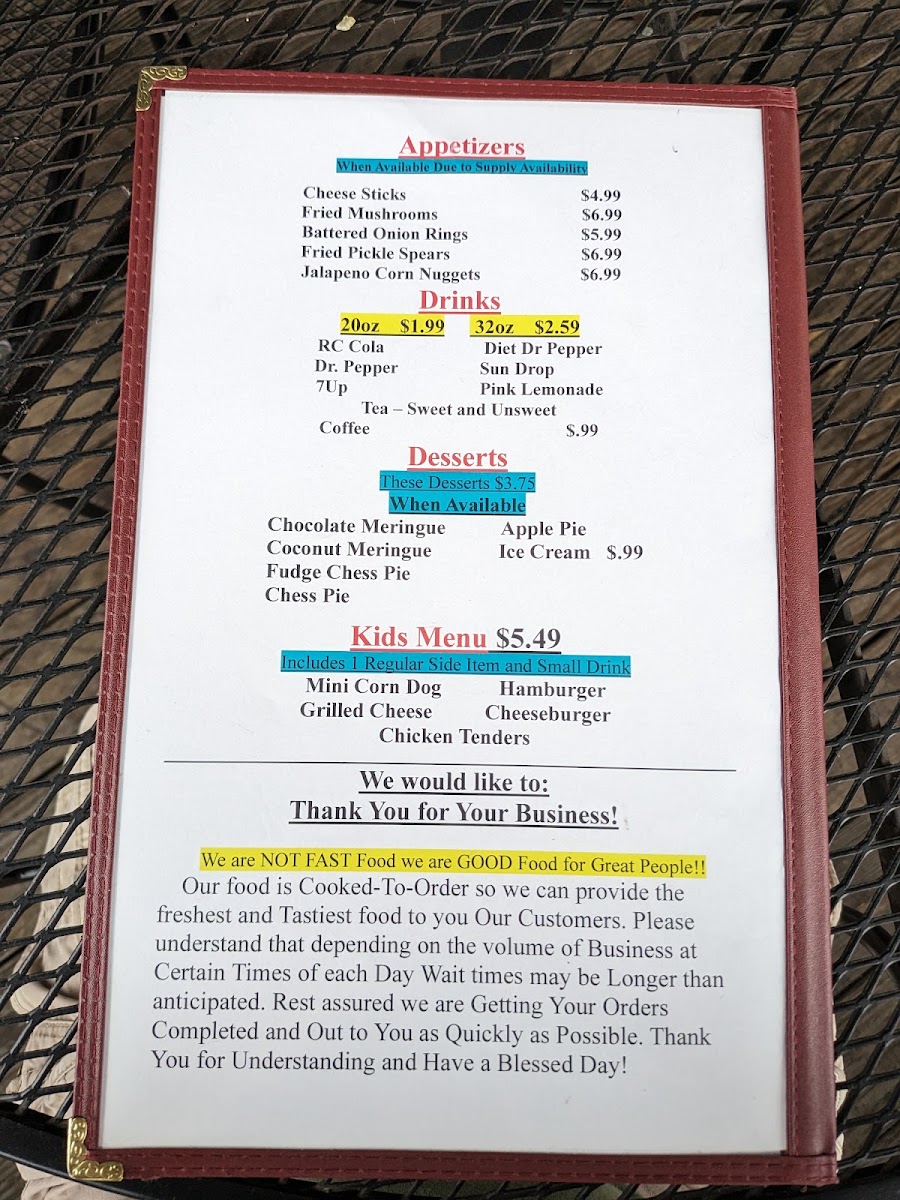 Appetizers
When Available Due to Supply Availability
Cheese Sticks $4.99
Fried Mushrooms $6.99
Battered Onion Rings $5.99
Fried Pickle Spears $6.99
Jalapeno Corn Nuggets $6.99
Drinks
20oz $1.99 32oz $2.59
RC Cola Diet Dr Pepper
Dr. Pepper Sun Drop
7Up Pink Lemonade
Tea – Sweet and Unsweet
Coffee $.99
Desserts
These Desserts $3.75
When Available
Chocolate Meringue Apple Pie
Coconut Meringue Ice Cream $.99
Fudge Chess Pie
Chess Pie
Kids Menu $5.49
Includes 1 Regular Side Item and Small Drink
Mini Corn Dog Hamburger
Grilled Cheese Cheeseburger
Chicken Tenders
We would like to:
Thank You for Your Business!
We are NOT FAST Food we are GOOD Food for Great People!!
Our food is Cooked-To-Order so we can provide the
freshest and Tastiest food to you Our Customers. Please
understand that depending on the volume of Business at
Certain Times of each Day Wait times may be Longer than
anticipated. Rest assured we are Getting Your Orders
Completed and Out to You as Quickly as Possible. Thank
You for Understanding and Have a Blessed Day!